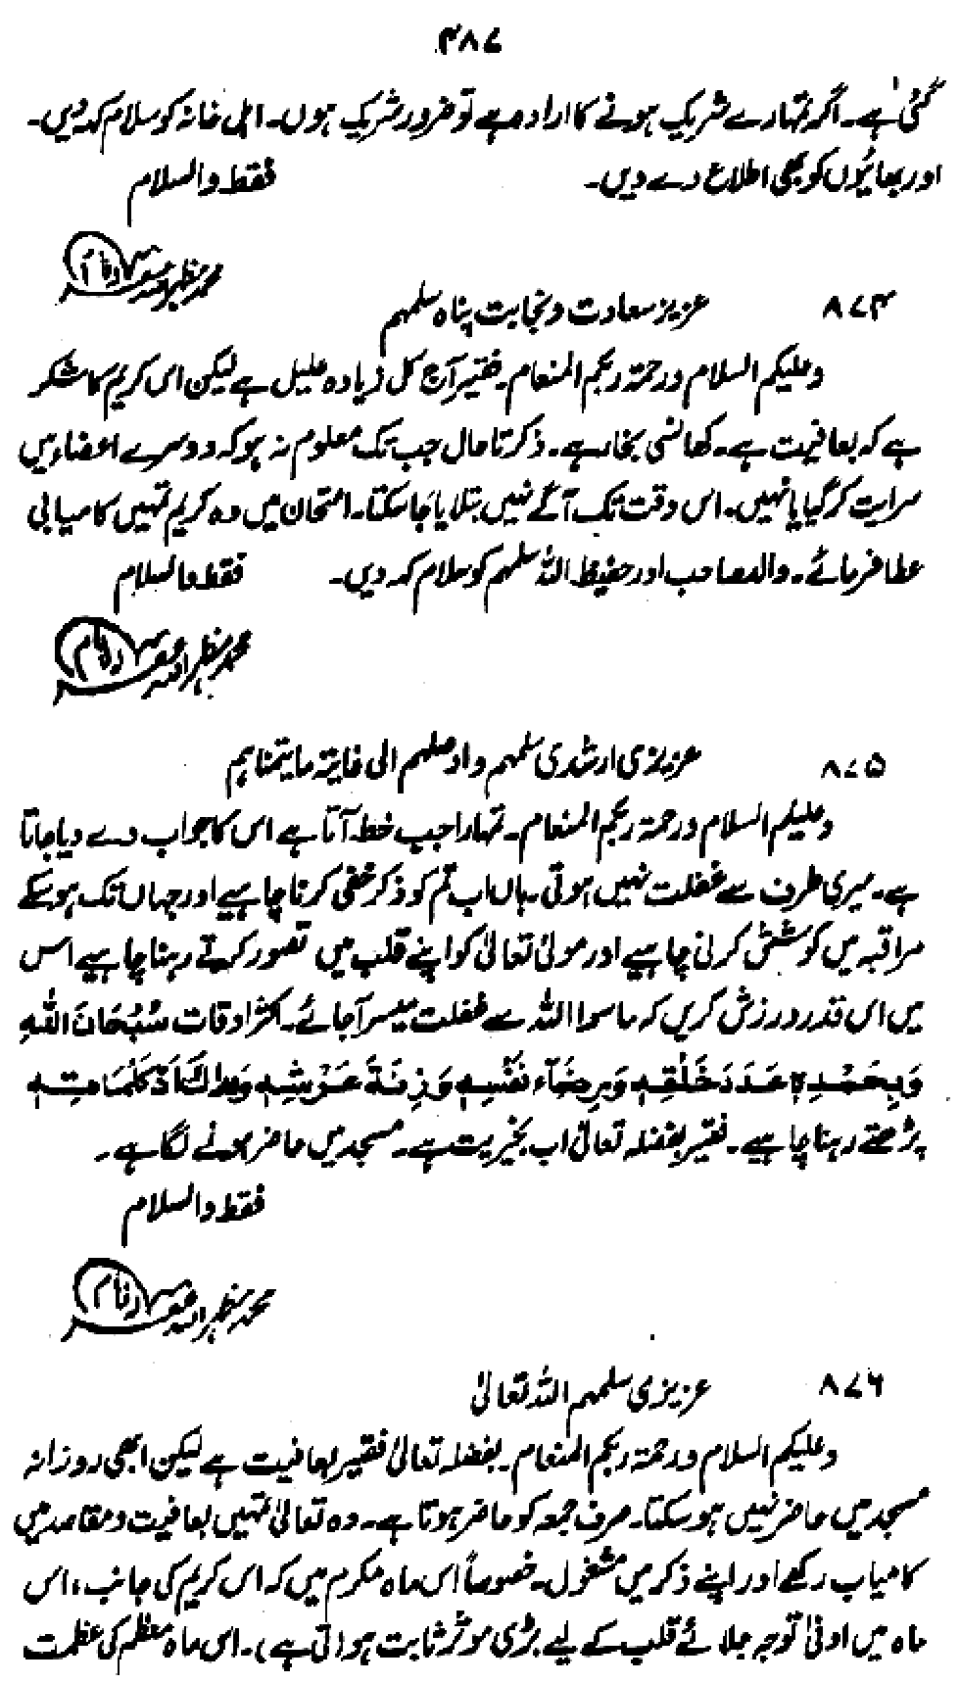 ۴۸۷
گئی ہے۔ اگر تمہارے شریک ہونے کا ارادہ ہے تو ضرور شریک ہوں۔ اہل خانہ کو سلام کہہ دیں۔
اور بھائیوں کو بھی اطلاع دے دیں۔ فقط والسلام
محمد مظہر اللہ
۸۷۴ عزیز سعادت ونجابت پناہ سلمہم
وعلیکم السلام ورحمۃ ربکم المنعام۔ فقیر آج کل زیادہ علیل ہے لیکن اس کریم کا شکر
ہے کہ بعافیت ہے۔ کھانسی بخار ہے۔ ذکر تا حال جب تک معلوم نہ ہو کہ دوسرے اعضاء میں
سرایت کر گیا یا نہیں۔ اس وقت تک آگے نہیں بتلایا جا سکتا۔ امتحان میں وہ کریم تمہیں کامیابی
عطا فرمائے۔ والد صاحب اور حفیظ اللہ سلمہم کو سلام کہہ دیں۔ فقط والسلام
محمد مظہر اللہ
۸۷۵ عزیزی ارشدی سلمہم واوصلہم الی غایۃ ما یتمناہم
وعلیکم السلام ورحمۃ ربکم المنعام۔ تمہارا جب خط آتا ہے اس کا جواب دے دیا جاتا
ہے۔ میری طرف سے غفلت نہیں ہوتی۔ ہاں اب تم کو ذکر خفی کرنا چاہیے اور جہاں تک ہو سکے
مراقبہ میں کوشش کرنی چاہیے اور مولیٰ تعالیٰ کو اپنے قلب میں تصور کرتے رہنا چاہیے اس
میں اس قدر ورزش کریں کہ ماسوا اللہ سے غفلت میسر آجائے۔ اکثر اوقات سُبْحَانَ اللہِ
وَبِحَمْدِہٖ عَدَدَ خَلْقِہٖ وَرِضَآءَ نَفْسِہٖ وَزِنَۃَ عَرْشِہٖ وَمِدَادَ کَلِمَاتِہٖ
پڑھتے رہنا چاہیے۔ فقیر بفضلہ تعالیٰ اب بخیریت ہے۔ مسجد میں حاضر ہونے لگا ہے۔
فقط والسلام
محمد مظہر اللہ
۸۷۶ عزیزی سلمہم اللہ تعالیٰ
وعلیکم السلام ورحمۃ ربکم المنعام۔ بفضلہ تعالیٰ فقیر بعافیت ہے لیکن ابھی روزانہ
مسجد میں حاضر نہیں ہو سکتا۔ صرف جمعہ کو حاضر ہوتا ہے۔ وہ تعالیٰ تمہیں بعافیت ومقاصد میں
کامیاب رکھے اور اپنے ذکر میں مشغول۔ خصوصاً اس ماہ مکرم میں کہ اس کریم کی جانب، اس
ماہ میں ادنیٰ توجہ جلائے قلب کے لیے بڑی موثر ثابت ہو (تی ہے)۔ اس ماہ معظم کی عظمت